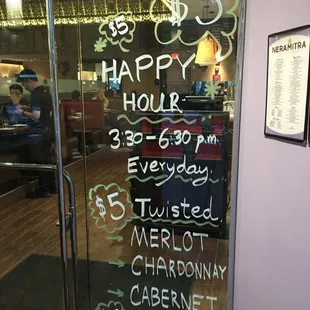 $5
$5
HAPPY
HOUR
3:30-6:30 p.m.
Everyday.
$5 Twisted.
MERLOT
CHARDONNAY
CABERNET
NERAMITRA